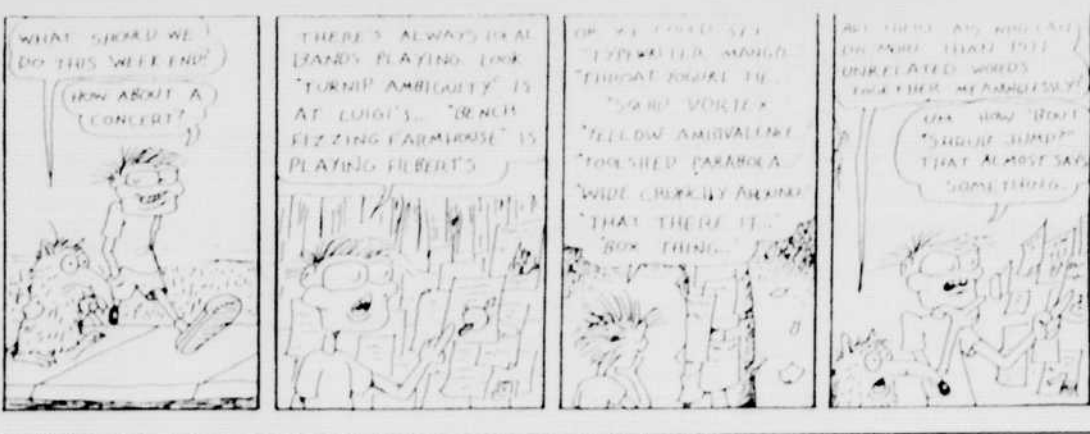 WHAT SHOULD WE
DO THIS WEEKEND?
HOW ABOUT A
CONCERT?
THERE'S ALWAYS LOCAL
BANDS PLAYING. LOOK
"TURNIP AMBIGUITY" IS
AT LUIGI'S... "BENCH
FIZZING FARMHOUSE" IS
PLAYING FILBERT'S
OR WE COULD SEE
"TYPEWRITER MANGO"
"THROAT YOGURT TIE..."
"SQUID VORTEX"
"YELLOW AMBIVALENCE"
"TOOLSHED PARABOLA..."
"WIDE CRUNCHY AROUND"
"THAT THERE IT..."
"BOX THING..."
ARE THERE ANY
OR MORE THAN JUST
UNRELATED WORDS
TOGETHER MEANINGLESSLY?
UM HOW 'BOUT
"SHRUB JUMP"
THAT ALMOST SAYS
SOMETHING.